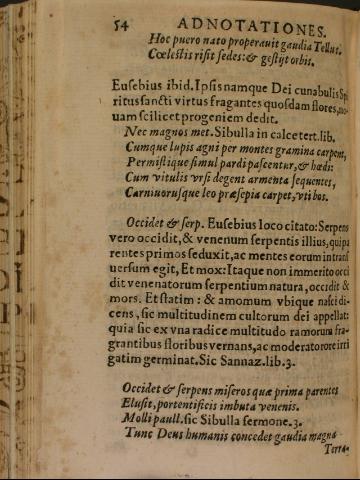 54 ADNOTATIONES.
Hoc puero nato properauit gaudia Tellus.
Cœlestis risit sedes: & gestijt orbis.
Eusebius ibid. Ipsis namque Dei cunabulis Spi
ritus sancti virtus fragantes quosdam flores, no-
uam scilicet progeniem dedit.
Nec magnos met. Sibulla in calce tert. lib.
Cumque lupis agni per montes gramina carpent,
Permistique simul pardi pascentur, & hœdi:
Cum vitulis vrsi degent armenta sequentes,
Carniuorusque leo præsepia carpet, vti bos.
Occidet & serp. Eusebius loco citato: Serpens
vero occidit, & venenum serpentis illius, qui pa
rentes primos seduxit, ac mentes eorum intran
uersum egit, Et mox: Itaque non immerito occi
dit venatorum serpentium natura, occidit &
mors. Et statim: & amomum vbique nasci di-
cens, sic multitudinem cultorum dei appellat:
quia sic ex vna radice multitudo ramorum fra-
grantibus floribus vernans, ac moderato rore irri
gatim germinat. Sic Sannaz. lib. 3.
Occidet & serpens miseros quæ prima parentes
Elusit, portentificis imbuta venenis.
Molli paull. sic Sibulla sermone. 3.
Tunc Deus humanis concedet gaudia magna
Terra-